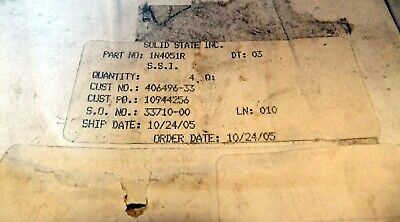 SOLID STATE INC.
PART NO: 1N4051R DT: 03
S.S.I.
QUANTITY: 4.0:
CUST NO.: 406496-33
CUST PO.: 10944256
S.O. NO.: 33710-00 LN: 010
SHIP DATE: 10/24/05
ORDER DATE: 10/24/05